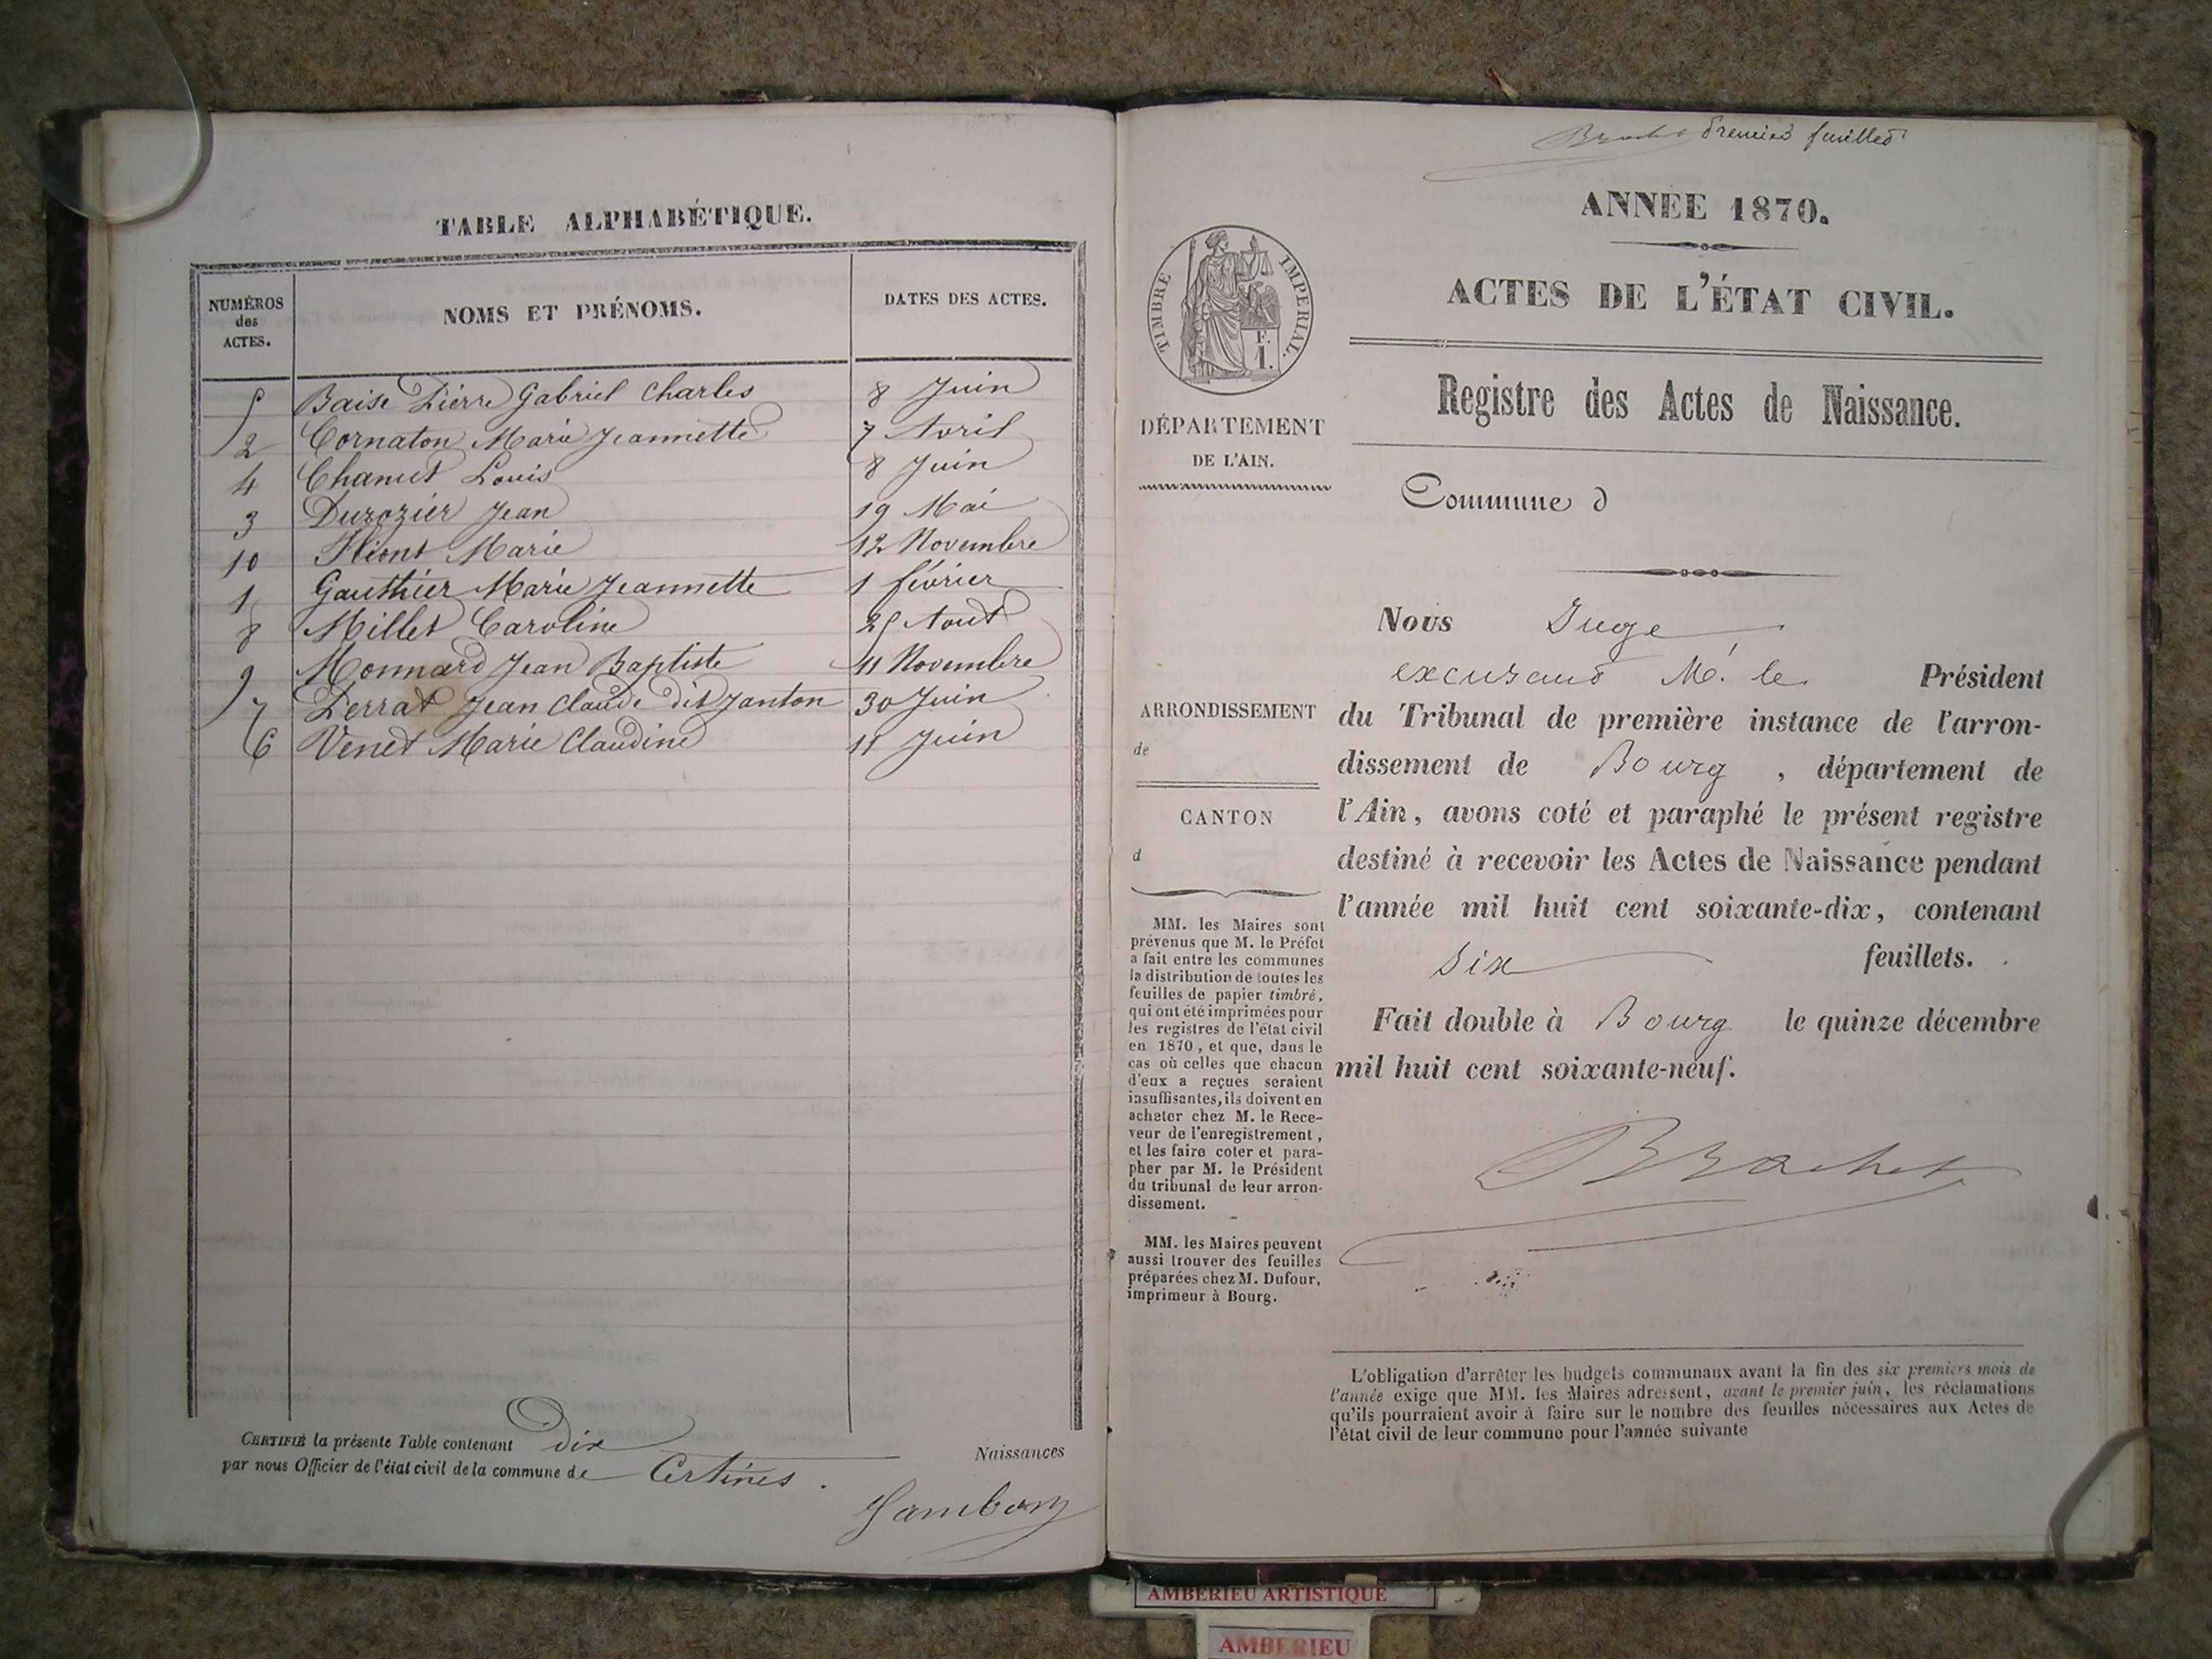 TABLE ALPHABÉTIQUE.
NUMÉROS des ACTES. NOMS ET PRÉNOMS. DATES DES ACTES.
5 Baise Pierre Gabriel Charles 8 Juin
2 Cornaton Marie Jeannette 7 Avril
4 Chanut Louis 8 Juin
3 Durozier Jean 19 Mai
10 Marie 12 Novembre
1 Gauthier Marie Jeannette 1 février
8 Millet Caroline 25 Aout
9 Monnard Jean Baptiste 11 Novembre
7 Perrat Jean Claude dit Janton 30 Juin
6 Venet Marie Claudine 11 Juin
CERTIFIÉ la présente Table contenant dix Naissances
par nous Officier de l'état civil de la commune de Certines.
Brachet Premier feuillet
ANNÉE 1870.
ACTES DE L'ÉTAT CIVIL.
Registre des Actes de Naissance.
TIMBRE IMPERIAL.
F.
1.
DÉPARTEMENT
DE L'AIN.
Commune d
ARRONDISSEMENT
de
CANTON
d
MM. les Maires sont
prévenus que M. le Préfet
a fait entre les communes
la distribution de toutes les
feuilles de papier timbré,
qui ont été imprimées pour
les registres de l'état civil
en 1870, et que, dans le
cas où celles que chacun
d'eux a reçues seraient
insuffisantes, ils doivent en
acheter chez M. le Rece-
veur de l'enregistrement,
et les faire coter et para-
pher par M. le Président
du tribunal de leur arron-
dissement.
MM. les Maires peuvent
aussi trouver des feuilles
préparées chez M. Dufour,
imprimeur à Bourg.
Nous Juge
M. le Président
du Tribunal de première instance de l'arron-
dissement de Bourg, département de
l'Ain, avons coté et paraphé le présent registre
destiné à recevoir les Actes de Naissance pendant
l'année mil huit cent soixante-dix, contenant
six feuillets.
Fait double à Bourg le quinze décembre
mil huit cent soixante-neuf.
Brachet
L'obligation d'arrêter les budgets communaux avant la fin des six premiers mois de
l'année exige que MM. les Maires adressent, avant le premier juin, les réclamations
qu'ils pourraient avoir à faire sur le nombre des feuilles nécessaires aux Actes de
l'état civil de leur commune pour l'année suivante
AMBERIEU ARTISTIQUE
AMBERIEU